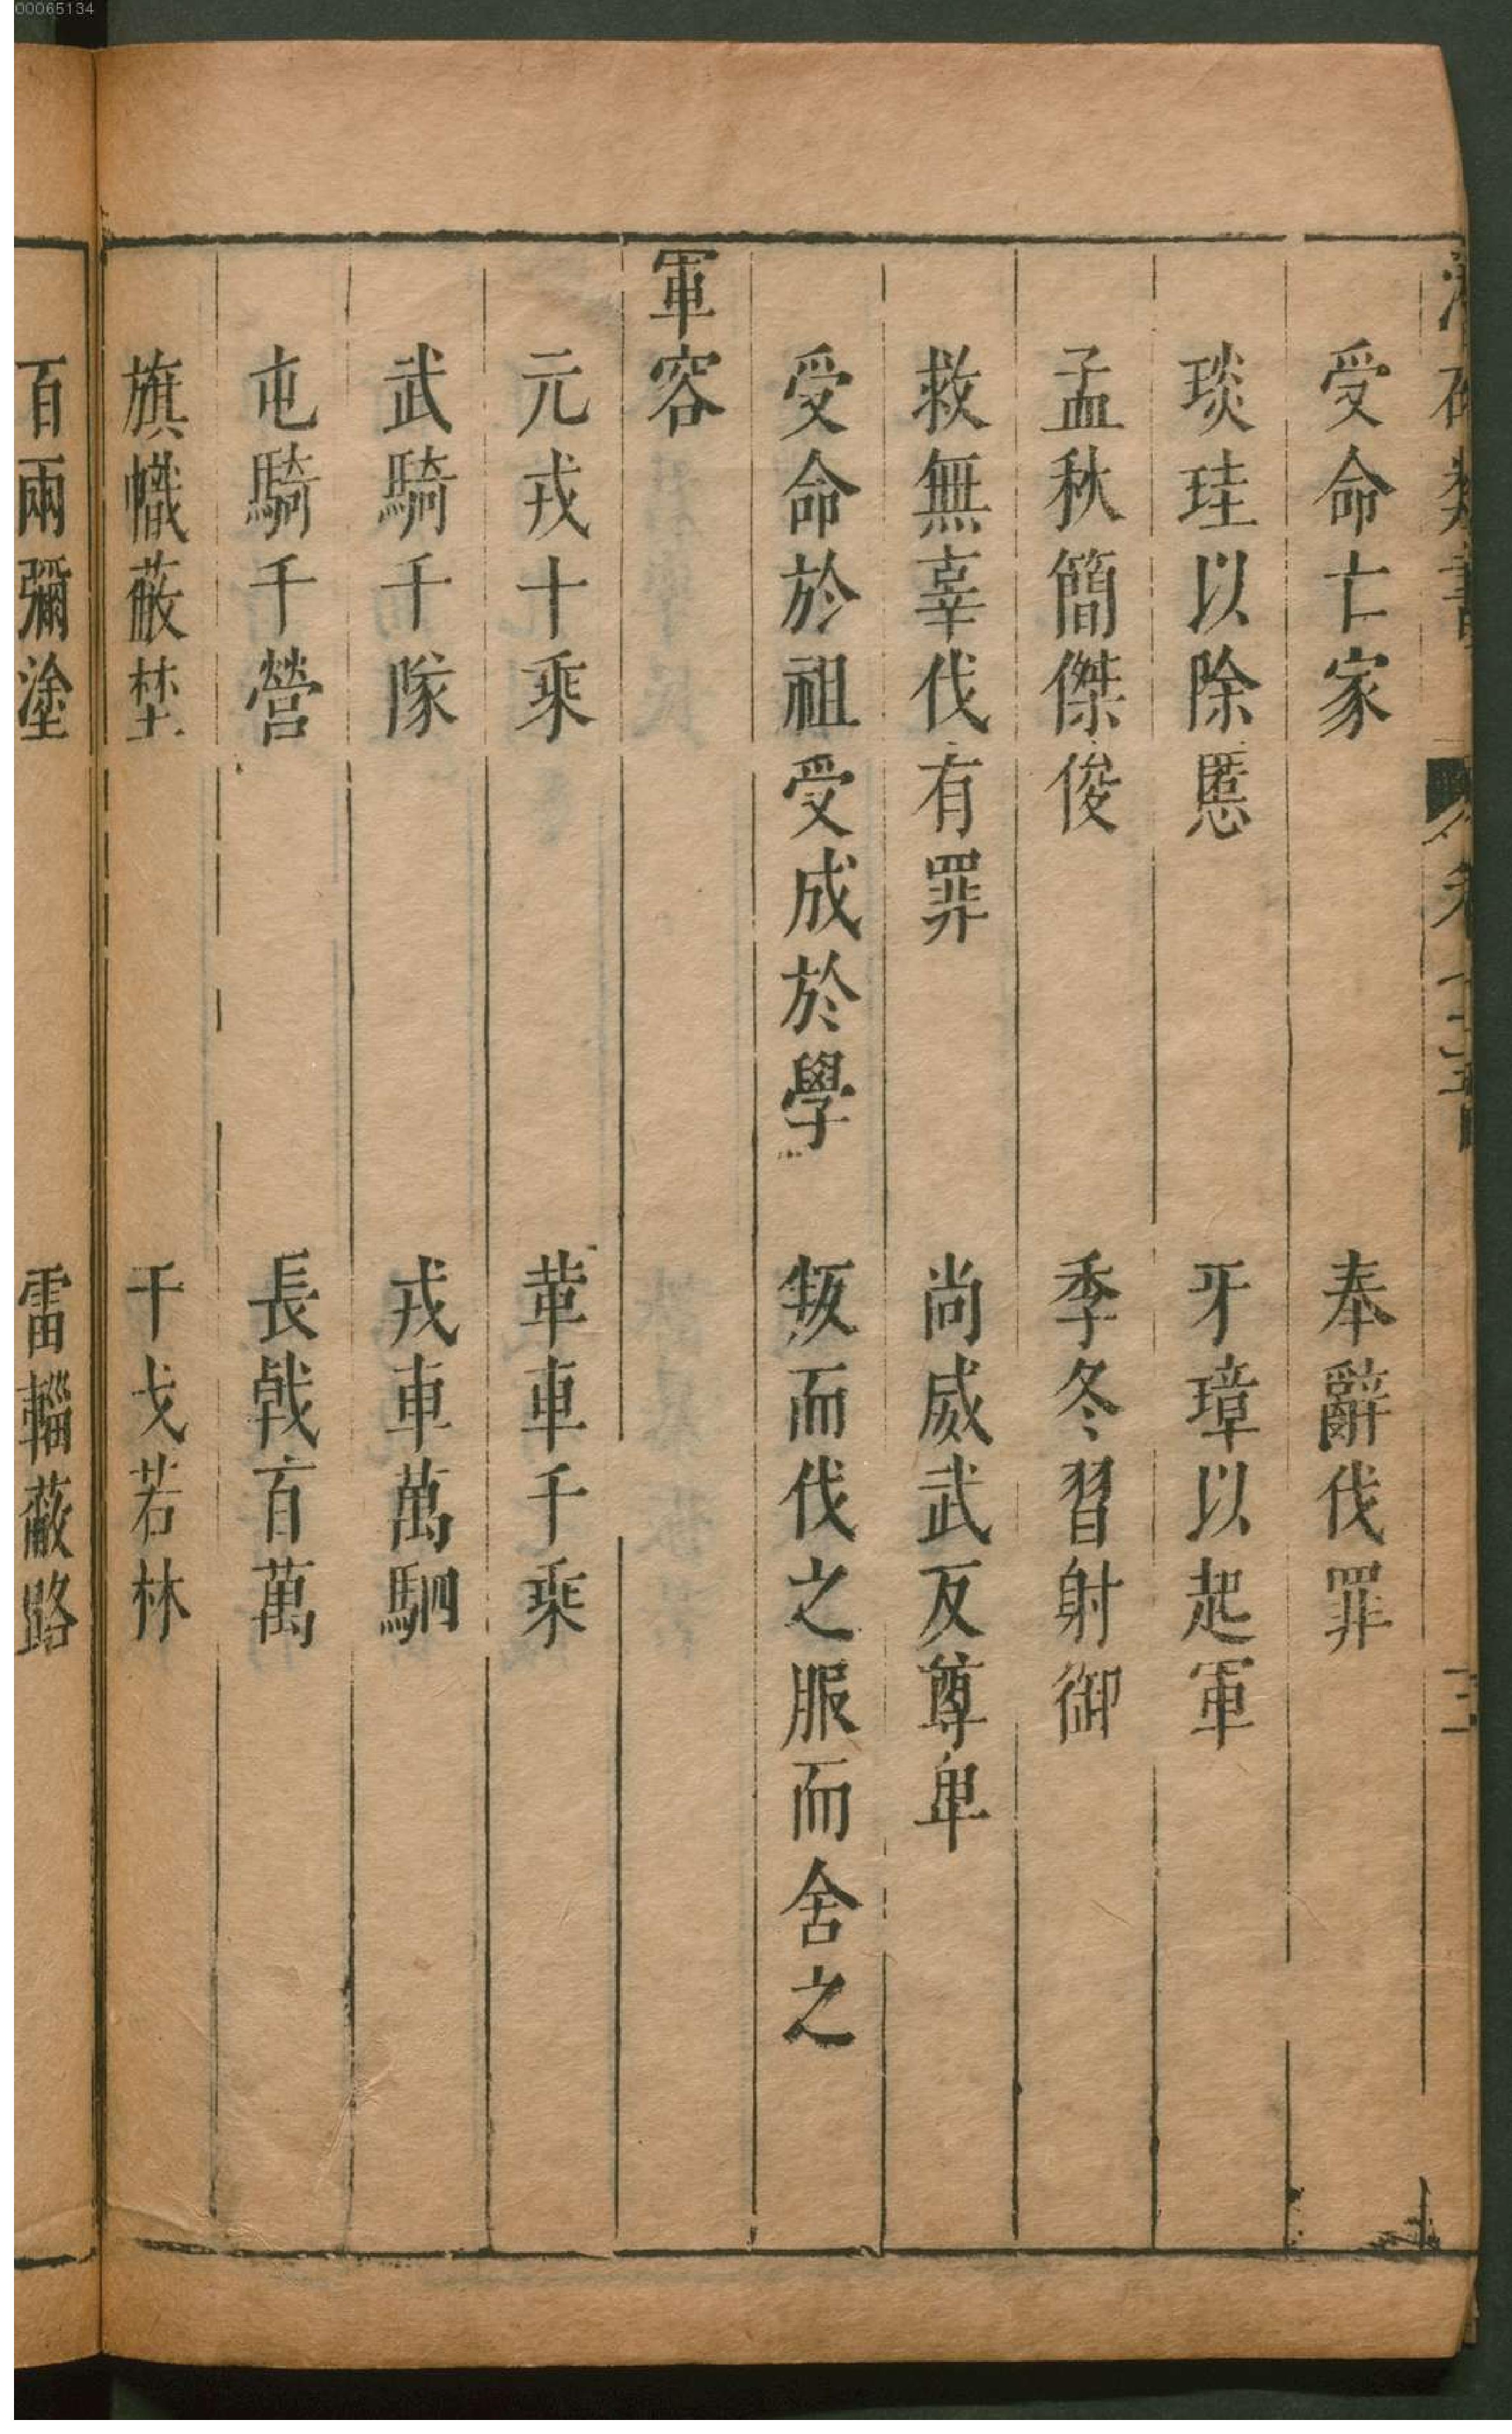 00065134
受命亡家 奉辭伐罪
琰珪以除慝 牙璋以起軍
孟秋簡傑俊 季冬習射御
救無辜伐有罪 尚威武反尊卑
受命於祖受成於學 叛而伐之服而舍之
軍容
元戎十乘 革車千乘
武騎千隊 戎車萬駟
屯騎千營 長戟百萬
旗幟蔽埜 干戈若林
百兩彌塗 雷輜蔽路